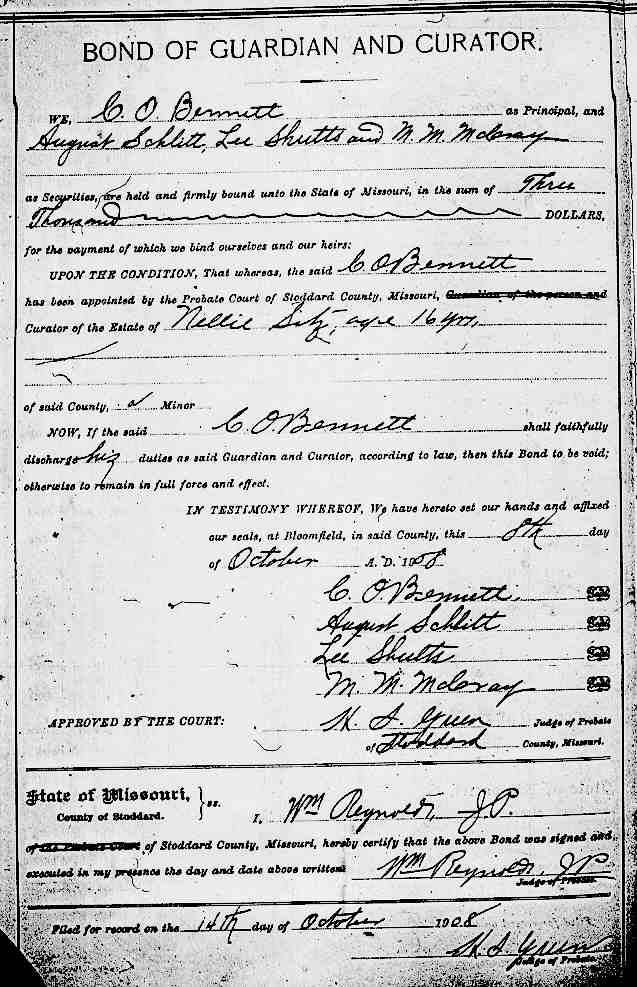 BOND OF GUARDIAN AND CURATOR.
WE, C. O. Bennett as Principal, and
August Schlitt, Lee Shutts and M. M. McCray
as Securities, are held and firmly bound unto the State of Missouri, in the sum of Three
Thousand DOLLARS,
for the payment of which we bind ourselves and our heirs:
UPON THE CONDITION, That whereas, the said C O Bennett
has been appointed by the Probate Court of Stoddard County, Missouri, Guardian of the person and
Curator of the Estate of Nellie Sitz, age 16 yrs,
of said County, a Minor
NOW, If the said C. O. Bennett shall faithfully
discharge his duties as said Guardian and Curator, according to law, then this Bond to be void;
otherwise to remain in full force and effect.
IN TESTIMONY WHEREOF, We have hereto set our hands and affixed
our seals, at Bloomfield, in said County, this 8th day
of October A. D. 1908
C. O. Bennett
August Schlitt
Lee Shutts
M. M. McCray
APPROVED BY THE COURT: Green Judge of Probate
of Stoddard County, Missouri.
State of Missouri,
County of Stoddard. } ss. I, Wm Reynolds, J.P.
of the Probate Court of Stoddard County, Missouri, hereby certify that the above Bond was signed and
executed in my presence the day and date above written Wm Reynolds, JP
Judge of Probate.
Filed for record on the 14th day of October 1908
Green
Judge of Probate.